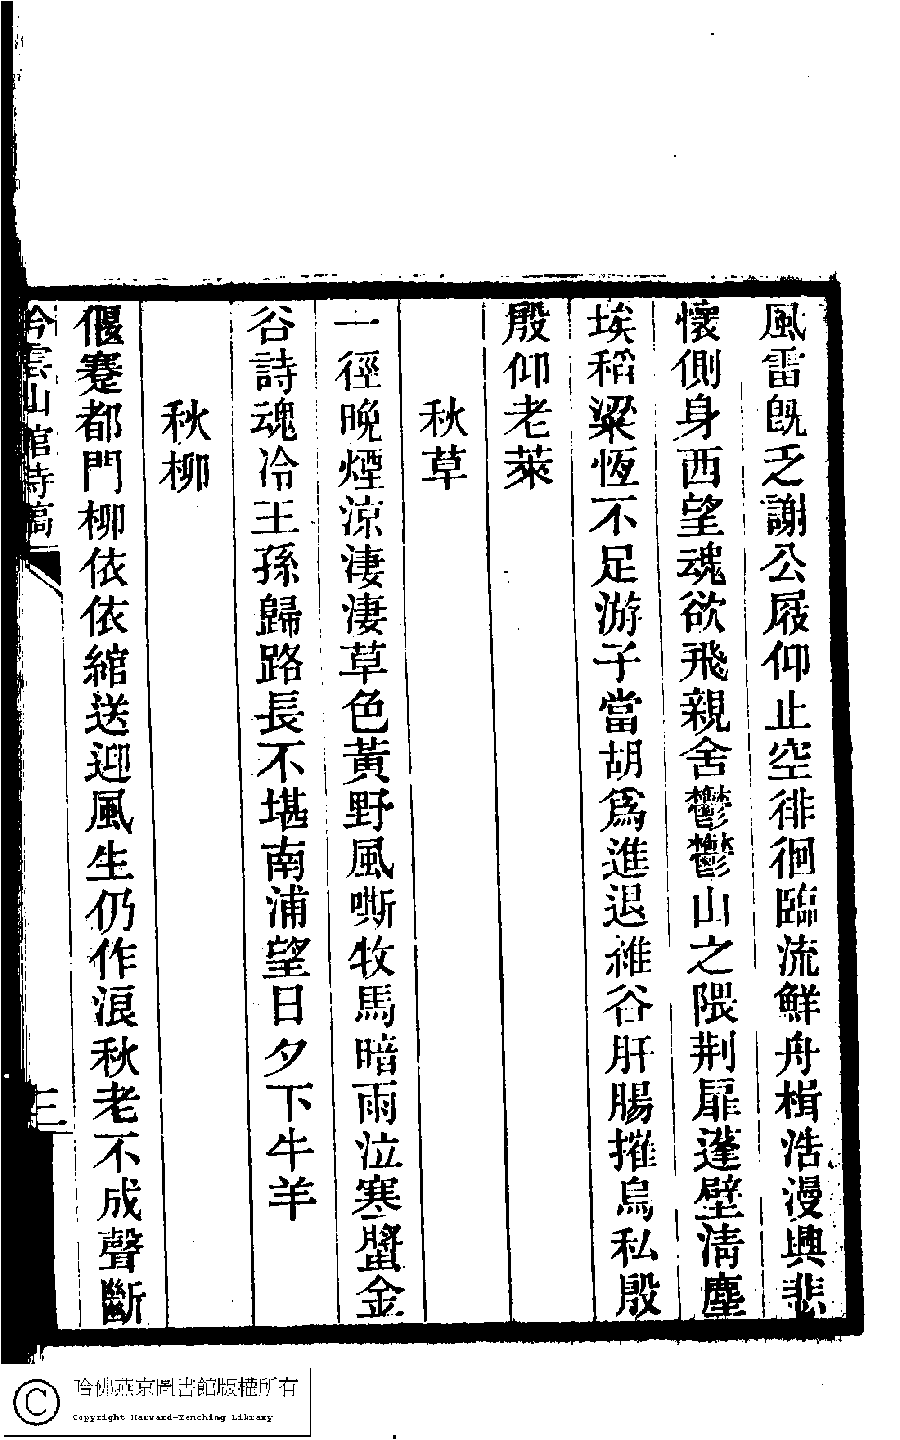 風雷旣乏謝公屐仰止空徘徊臨流鮮舟楫浩漫興悲
懷側身西望魂欲飛親舍鬱鬱山之隈荆扉蓬壁清塵
埃稻粱恆不足游子當胡爲進退維谷肝腸摧烏私殷
殷仰老萊
秋草
一徑晚煙涼淒淒草色黃野風嘶牧馬暗雨泣寒螿金
谷詩魂冷王孫歸路長不堪南浦望日夕下牛羊
秋柳
偃蹇都門柳依依綰送迎風生仍作浪秋老不成聲斷
吟雲山館詩稿
三
哈佛燕京圖書館版權所有
Copyright Harvard-Yenching Library